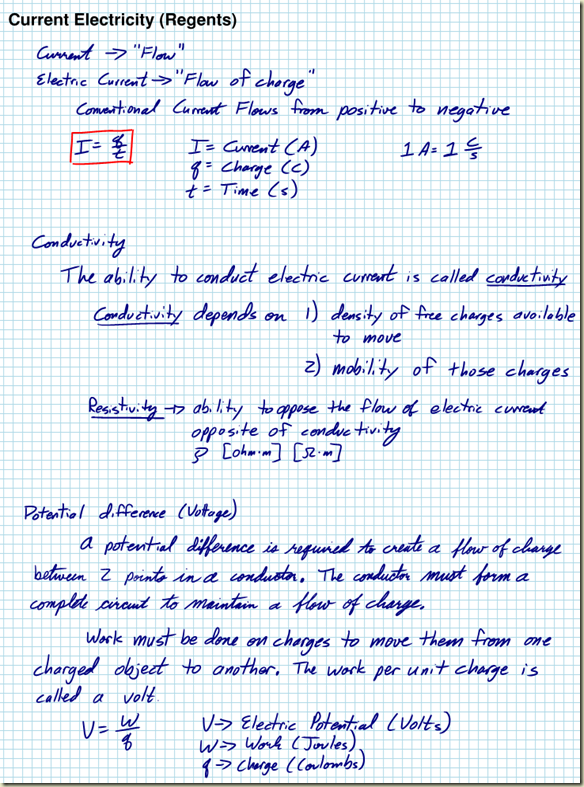 Current Electricity (Regents)
Current → "Flow"
Electric Current → "Flow of charge"
Conventional Current Flows from positive to negative
I = q/t    I = Current (A)    1 A = 1 C/s
q = Charge (C)
t = Time (s)
Conductivity
The ability to conduct electric current is called conductivity
Conductivity depends on 1) density of free charges available
to move
2) mobility of those charges
Resistivity → ability to oppose the flow of electric current
opposite of conductivity
ρ [ohm·m] [Ω·m]
Potential difference (Voltage)
A potential difference is required to create a flow of charge
between 2 points in a conductor. The conductor must form a
complete circuit to maintain a flow of charge.
Work must be done on charges to move them from one
charged object to another. The work per unit charge is
called a volt.
V = W/q    V → Electric Potential (Volts)
W → Work (Joules)
q → Charge (Coulombs)